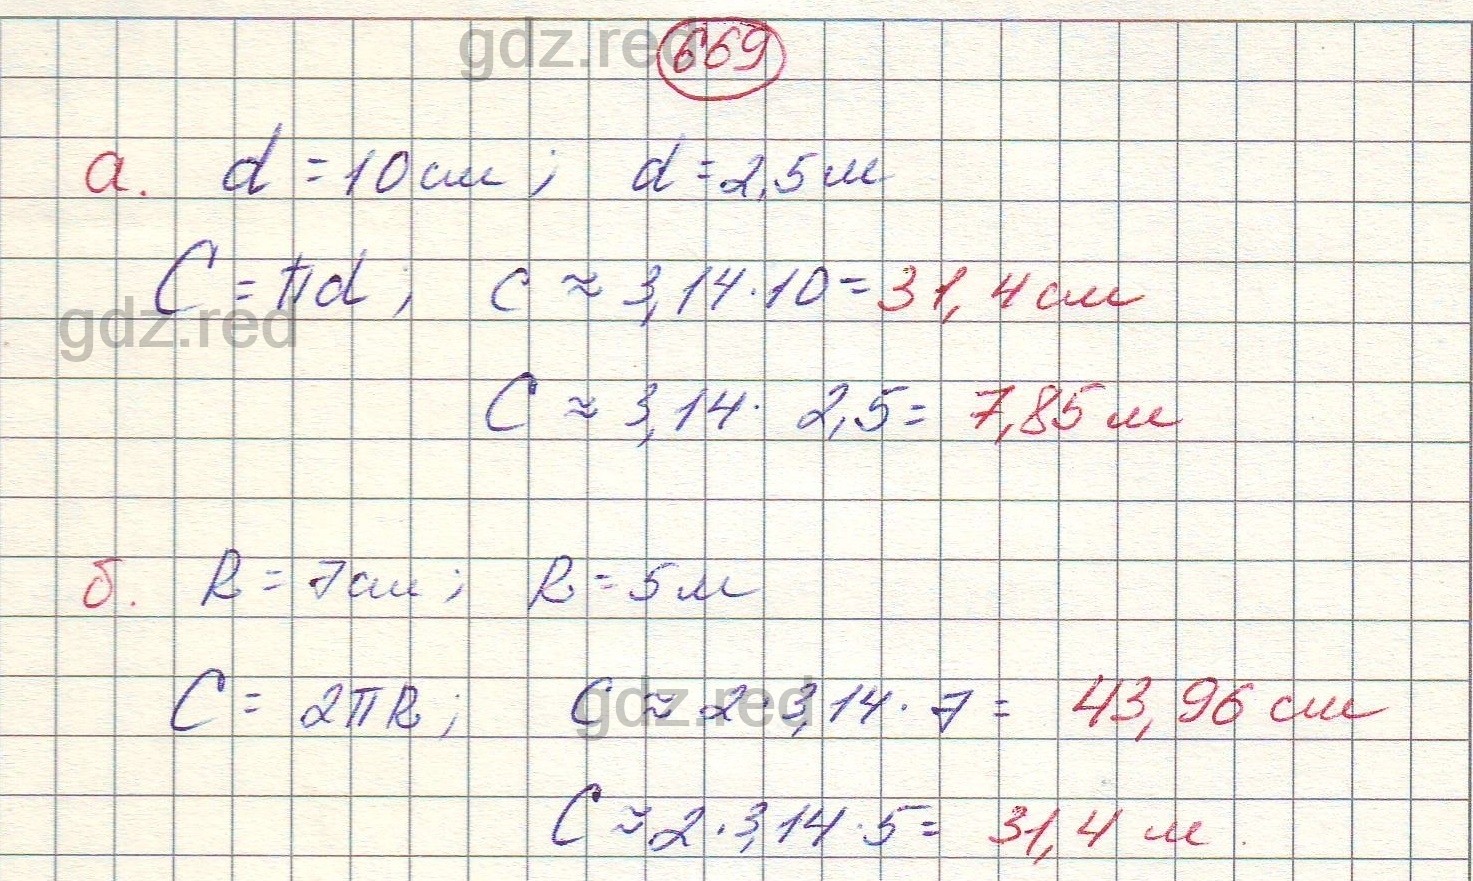 gdz.red
669
а. d = 10 см ; d = 2,5 м
C = πd ; c ≈ 3,14 · 10 = 31,4 см
gdz.red
C ≈ 3,14 · 2,5 = 7,85 м
б. R = 7 см ; R = 5 м
C = 2πR ; C ≈ 2 · 3,14 · 7 = 43,96 см
gdz.red
C ≈ 2 · 3,14 · 5 = 31,4 м .